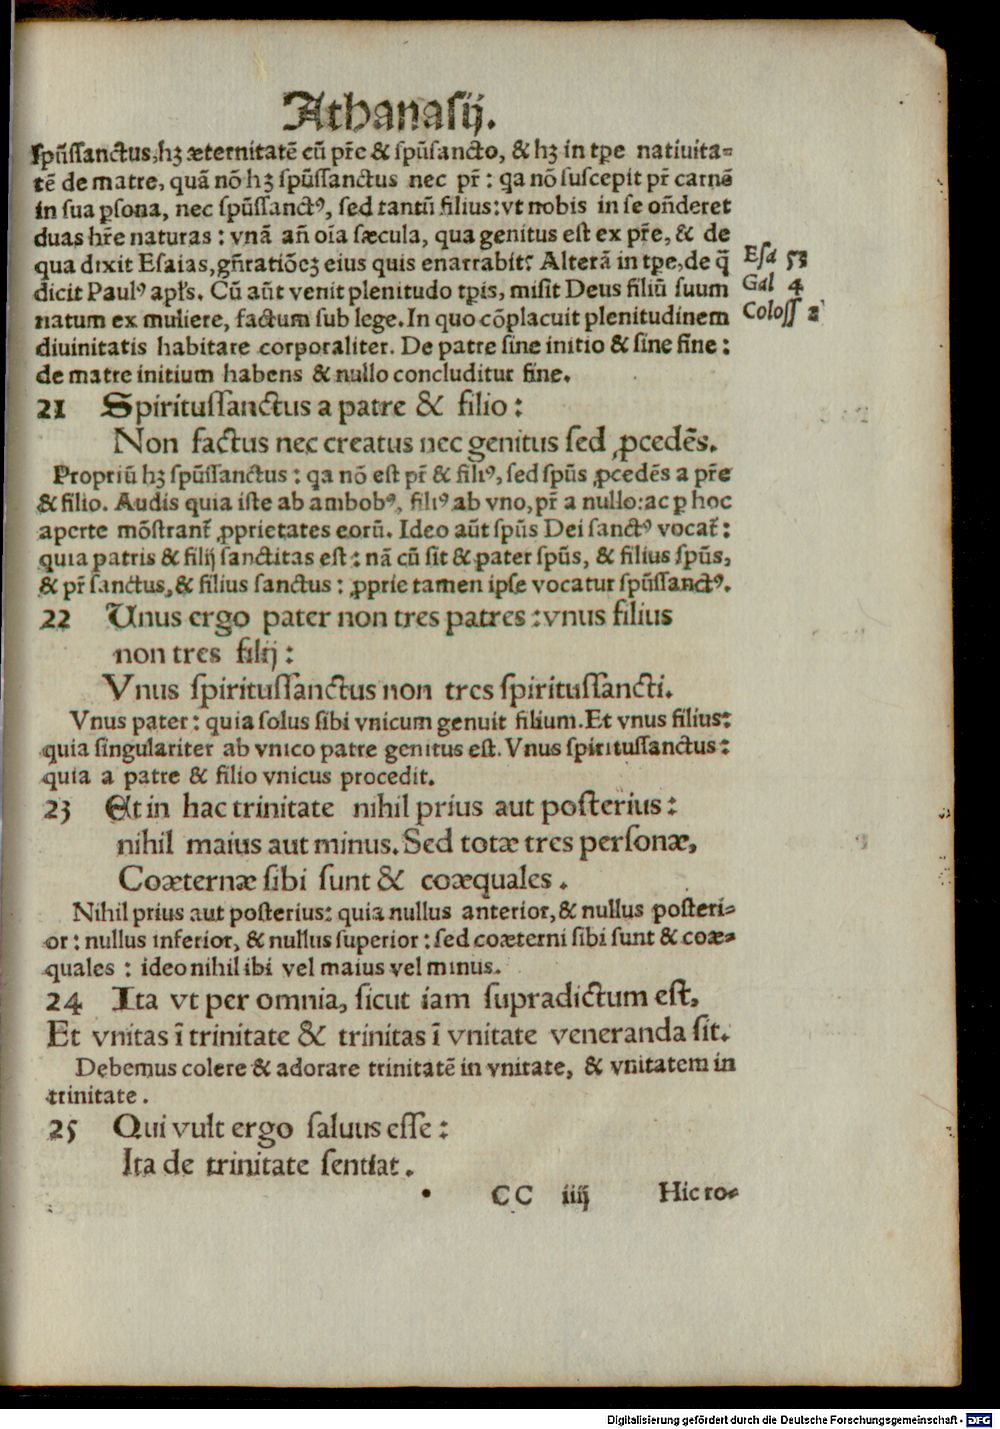 Athanasij.
ſpũſſanctus, hꝫ æternitatẽ cũ pr̃e & ſpũſancto, & hꝫ in tp̃e natiuita⸗
tẽ de matre, quã nõ hꝫ ſpũſſanctus nec pr̃ : qa nõ ſuſcepit pr̃ carnẽ
in ſua ꝑſona, nec ſpũſſanctꝰ, ſed tantũ filius: vt nobis in ſe oñderet
duas hr̃e naturas : vnã añ oĩa ſæcula, qua genitus eſt ex pr̃e, & de
qua dixit Eſaias, gñratiõeꝫ eius quis enarrabit? Alterã in tp̃e, de q̃
dicit Paulꝰ apłs. Cũ aũt venit plenitudo tp̃is, miſit Deus filiũ ſuum
natum ex muliere, factum ſub lege. In quo cõplacuit plenitudinem
diuinitatis habitare corporaliter. De patre ſine initio & ſine fine :
de matre initium habens & nullo concluditur fine.
Eſa 53
Gal 4
Coloſſ 2
21 Spirituſſanctus a patre & filio :
Non factus nec creatus nec genitus ſed ꝓcedẽs.
Propriũ hꝫ ſpũſſanctus : qa nõ eſt pr̃ & filiꝰ, ſed ſpũs ꝓcedẽs a pr̃e
& filio. Audis quia iſte ab ambobꝰ, filiꝰ ab vno, pr̃ a nullo: ac ꝑ hoc
aperte mõſtrant̃ ꝓprietates eorũ. Ideo aũt ſpũs Dei ſanctꝰ vocat̃ :
quia patris & filij ſanctitas eſt : nã cũ ſit & pater ſpũs, & filius ſpũs,
& pr̃ ſanctus, & filius ſanctus : ꝓprie tamen ipſe vocatur ſpũſſanctꝰ.
22 Unus ergo pater non tres patres : vnus filius
non tres filij :
Vnus ſpirituſſanctus non tres ſpirituſſancti.
Vnus pater : quia ſolus ſibi vnicum genuit filium. Et vnus filius:
quia ſingulariter ab vnico patre genitus eſt. Vnus ſpirituſſanctus :
quia a patre & filio vnicus procedit.
23 Et in hac trinitate nihil prius aut poſterius :
nihil maius aut minus. Sed totæ tres perſonæ,
Coæternæ ſibi ſunt & coæquales .
Nihil prius aut poſterius: quia nullus anterior, & nullus poſteri⸗
or : nullus inferior, & nullus ſuperior : ſed coæterni ſibi ſunt & coæ⸗
quales : ideo nihil ibi vel maius vel minus.
24 Ita vt per omnia, ſicut iam ſupradictum eſt,
Et vnitas ĩ trinitate & trinitas ĩ vnitate veneranda ſit.
Debemus colere & adorare trinitatẽ in vnitate, & vnitatem in
trinitate .
25 Qui vult ergo ſaluus eſſe :
Ita de trinitate ſentiat .
CC iiij Hiero⸗
Digitalisierung gefördert durch die Deutsche Forschungsgemeinschaft - DFG